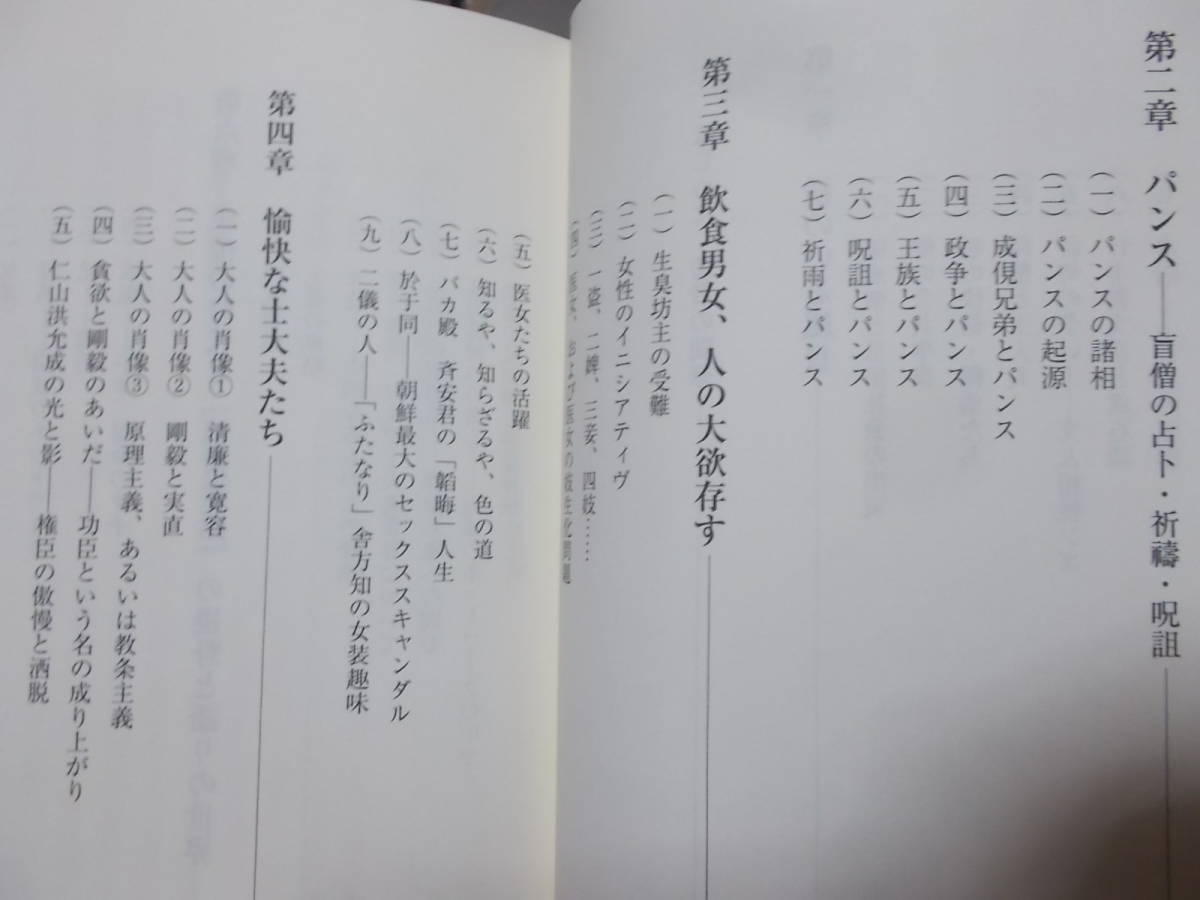 第二章　パンス――盲僧の占ト・祈禱・呪詛
（一）パンスの諸相
（二）パンスの起源
（三）成俔兄弟とパンス
（四）政争とパンス
（五）王族とパンス
（六）呪詛とパンス
（七）祈雨とパンス
第三章　飲食男女、人の大欲存す
（一）生臭坊主の受難
（二）女性のイニシアティヴ
（三）一盗、二婢、三妾、四妓……
（四）医女、および医女の妓生化問題
（五）医女たちの活躍
（六）知るや、知らざるや、色の道
（七）バカ殿　斉安君の「韜晦」人生
（八）於于同――朝鮮最大のセックススキャンダル
（九）二儀の人――「ふたなり」舎方知の女装趣味
第四章　愉快な士大夫たち
（一）大人の肖像①　清廉と寛容
（二）大人の肖像②　剛毅と実直
（三）大人の肖像③　原理主義、あるいは教条主義
（四）貪欲と剛毅のあいだ――功臣という名の成り上がり
（五）仁山洪允成の光と影――権臣の傲慢と洒脱